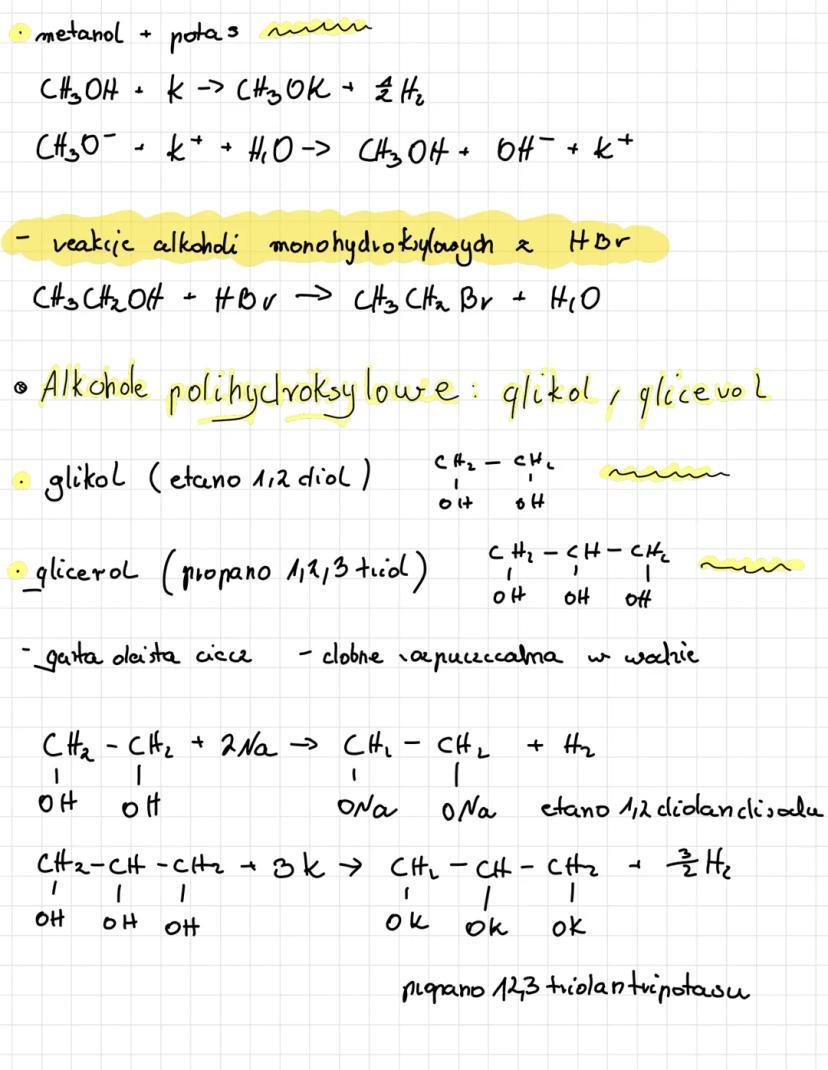 • metanol + potas
CH₃OH + K -> CH₃OK + ½ H₂
CH₃O⁻ + K⁺ + H₂O -> CH₃OH + OH⁻ + K⁺
- reakcje alkoholi monohydroksylowych z HBr
CH₃CH₂OH + HBr → CH₃CH₂Br + H₂O
• Alkohole polihydroksylowe: glikol, glicerol
• glikol (etano 1,2 diol) CH₂ - CH₂
OH OH
• glicerol (propano 1,2,3 triol) CH₂ - CH - CH₂
OH OH OH
- gęsta oleista ciecz - dobrze rozpuszczalna w wodzie
CH₂ - CH₂ + 2Na → CH₂ - CH₂ + H₂
OH OH ONa ONa etano 1,2 diolan disodu
CH₂-CH-CH₂ + 3K → CH₂ - CH - CH₂ + 3/2 H₂
OH OH OH OK OK OK
propano 1,2,3 triolan tripotasu